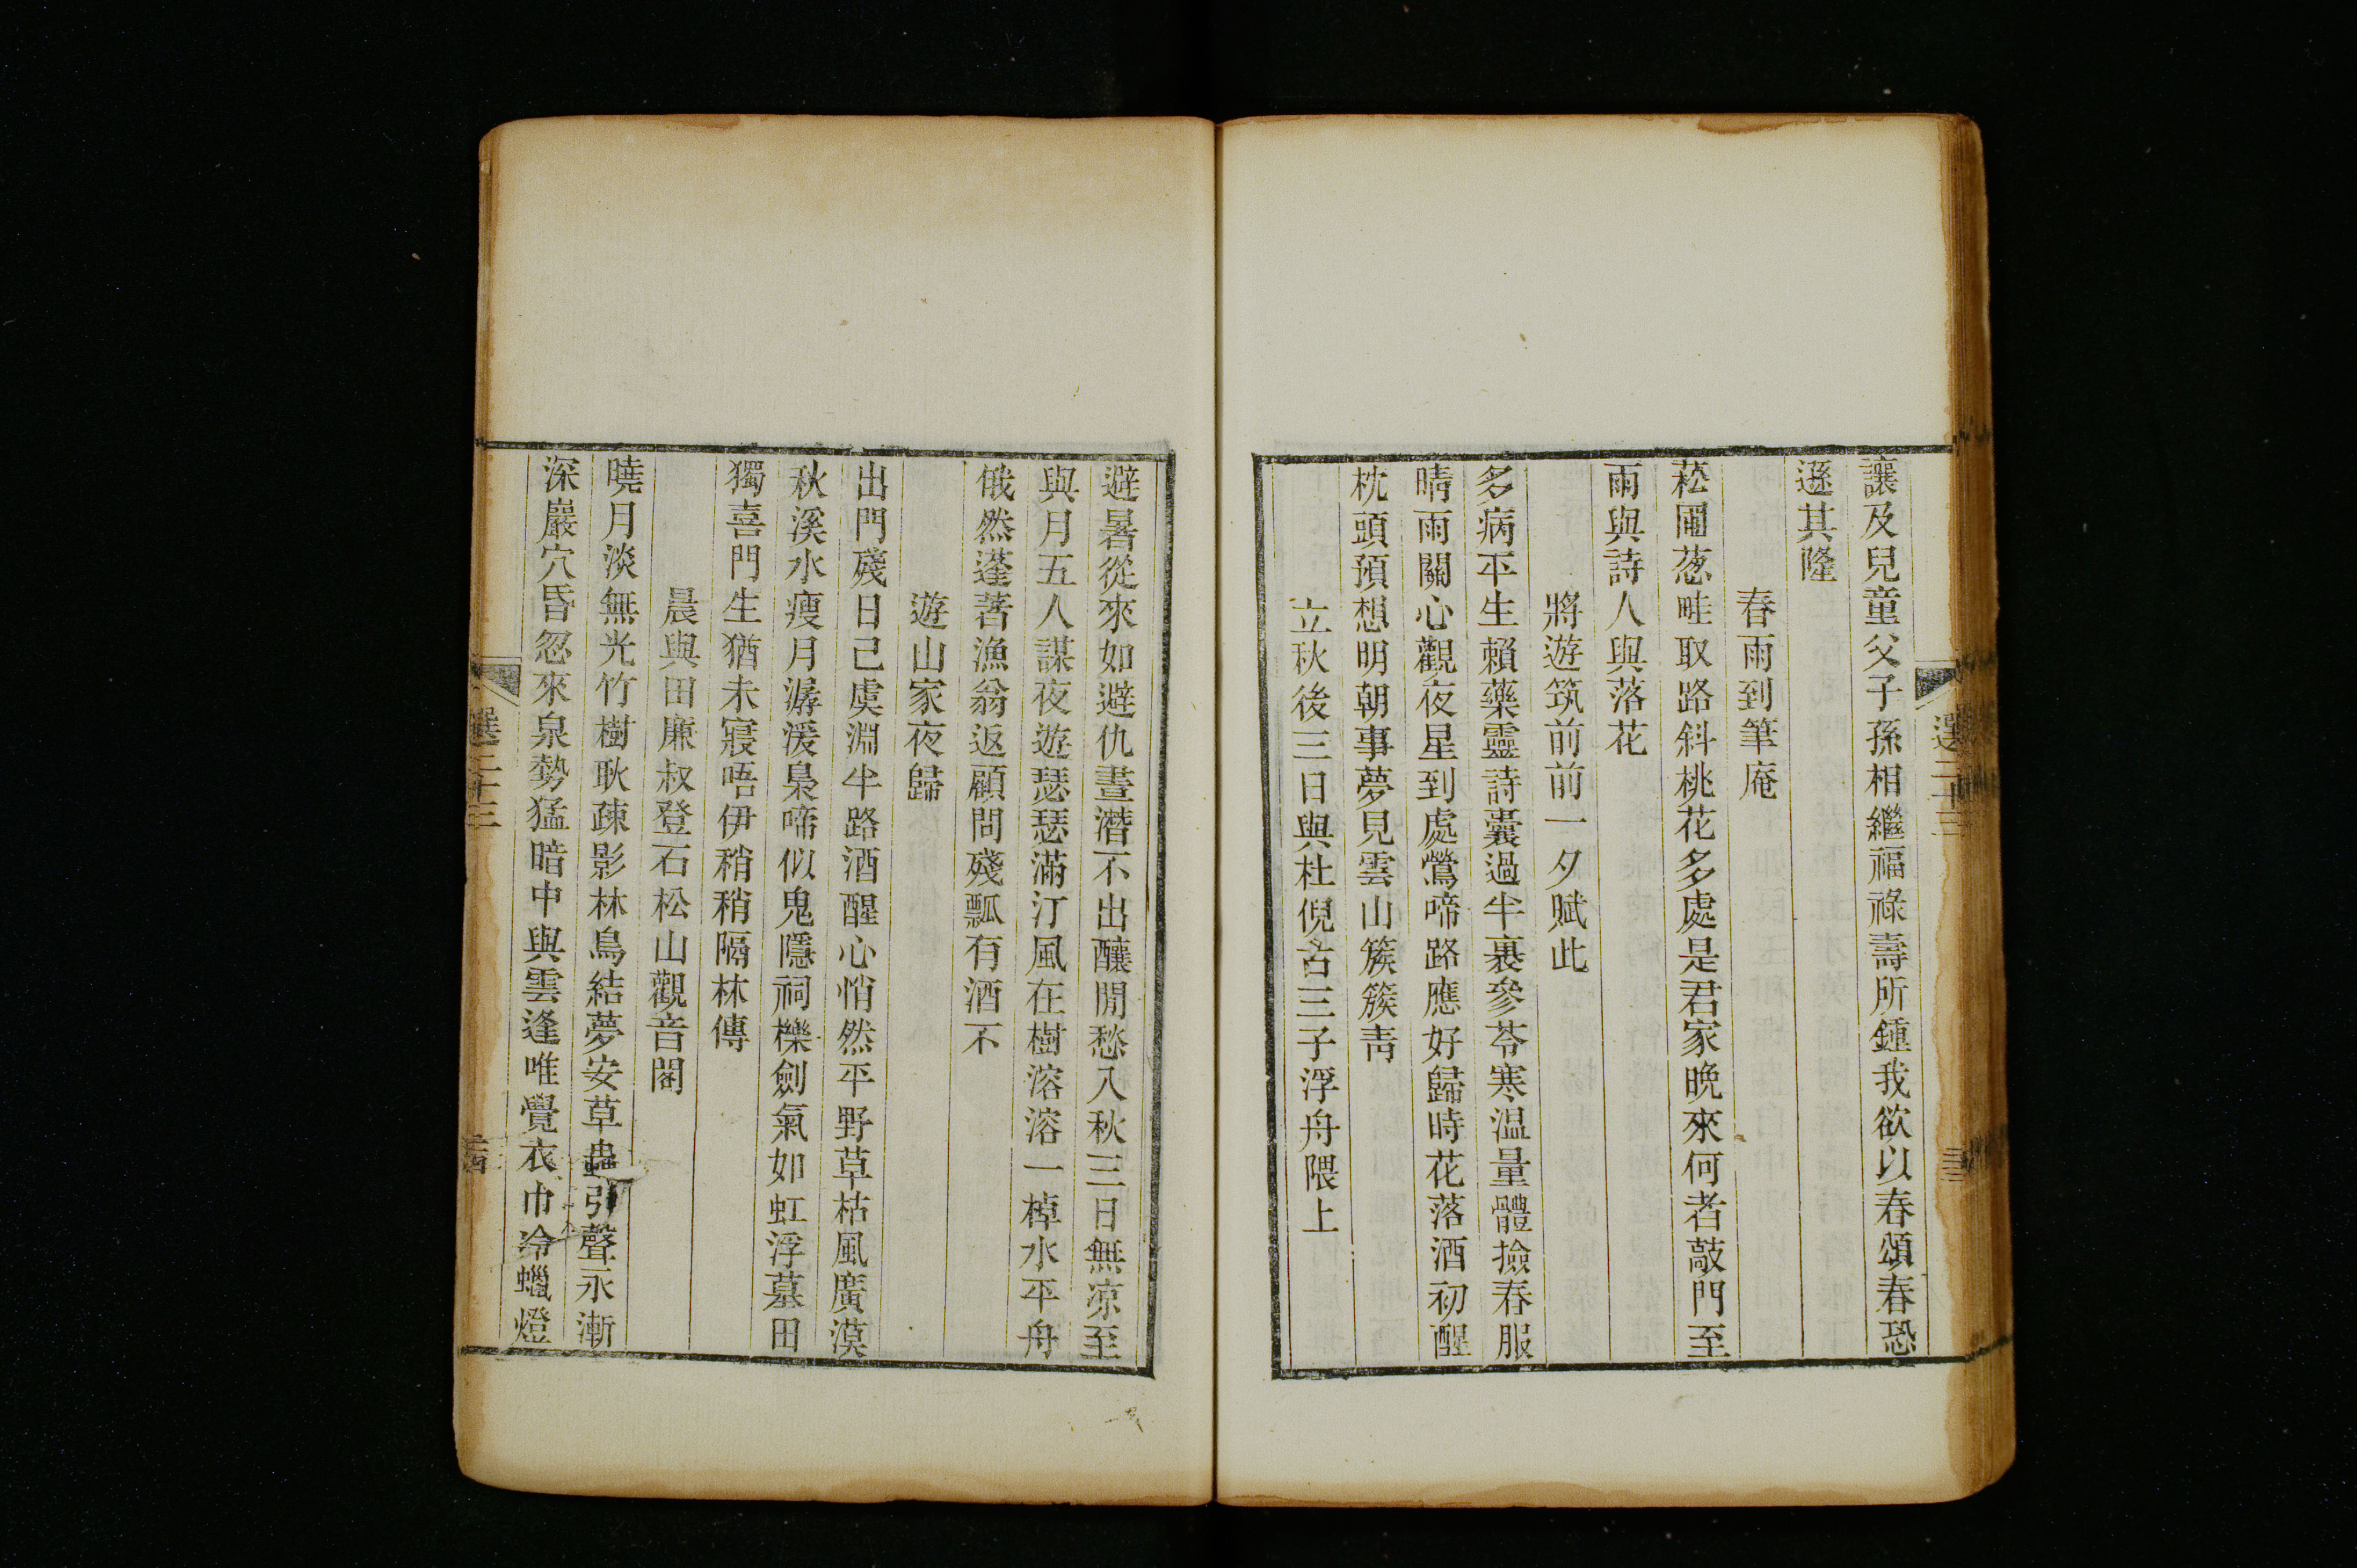 讓及兒童父子孫相繼福祿壽所鍾我欲以春頌春恐
遜其隆
春雨到筆庵
菘圃葱畦取路斜桃花多處是君家晩來何者敲門至
雨與詩人與落花
將遊筑前前一夕賦此
多病平生賴藥靈詩囊過半裹參苓寒温量體撿春服
晴雨關心觀夜星到處鶯啼路應好歸時花落酒初醒
枕頭預想明朝事夢見雲山簇簇靑
立秋後三日與杜倪古三子浮舟隈上
選二十三
避暑從來如避仇晝潛不出釀閒愁入秋三日無凉至
與月五人謀夜遊瑟瑟滿汀風在樹溶溶一棹水平舟
俄然蓬蓽漁翁返顧問殘瓢有酒不
遊山家夜歸
出門殘日已虞淵半路酒醒心悄然平野草枯風廣漠
秋溪水瘦月潺湲梟啼似鬼隱祠櫟劍氣如虹浮墓田
獨喜門生猶未寢唔伊稍稍隔林傳
晨與田廉叔登石松山觀音閣
曉月淡無光竹樹耿疎影林鳥結夢安草蟲引聲永漸
深巖穴昏忽來泉勢猛暗中與雲逢唯覺衣巾冷蠟燈
選二十三